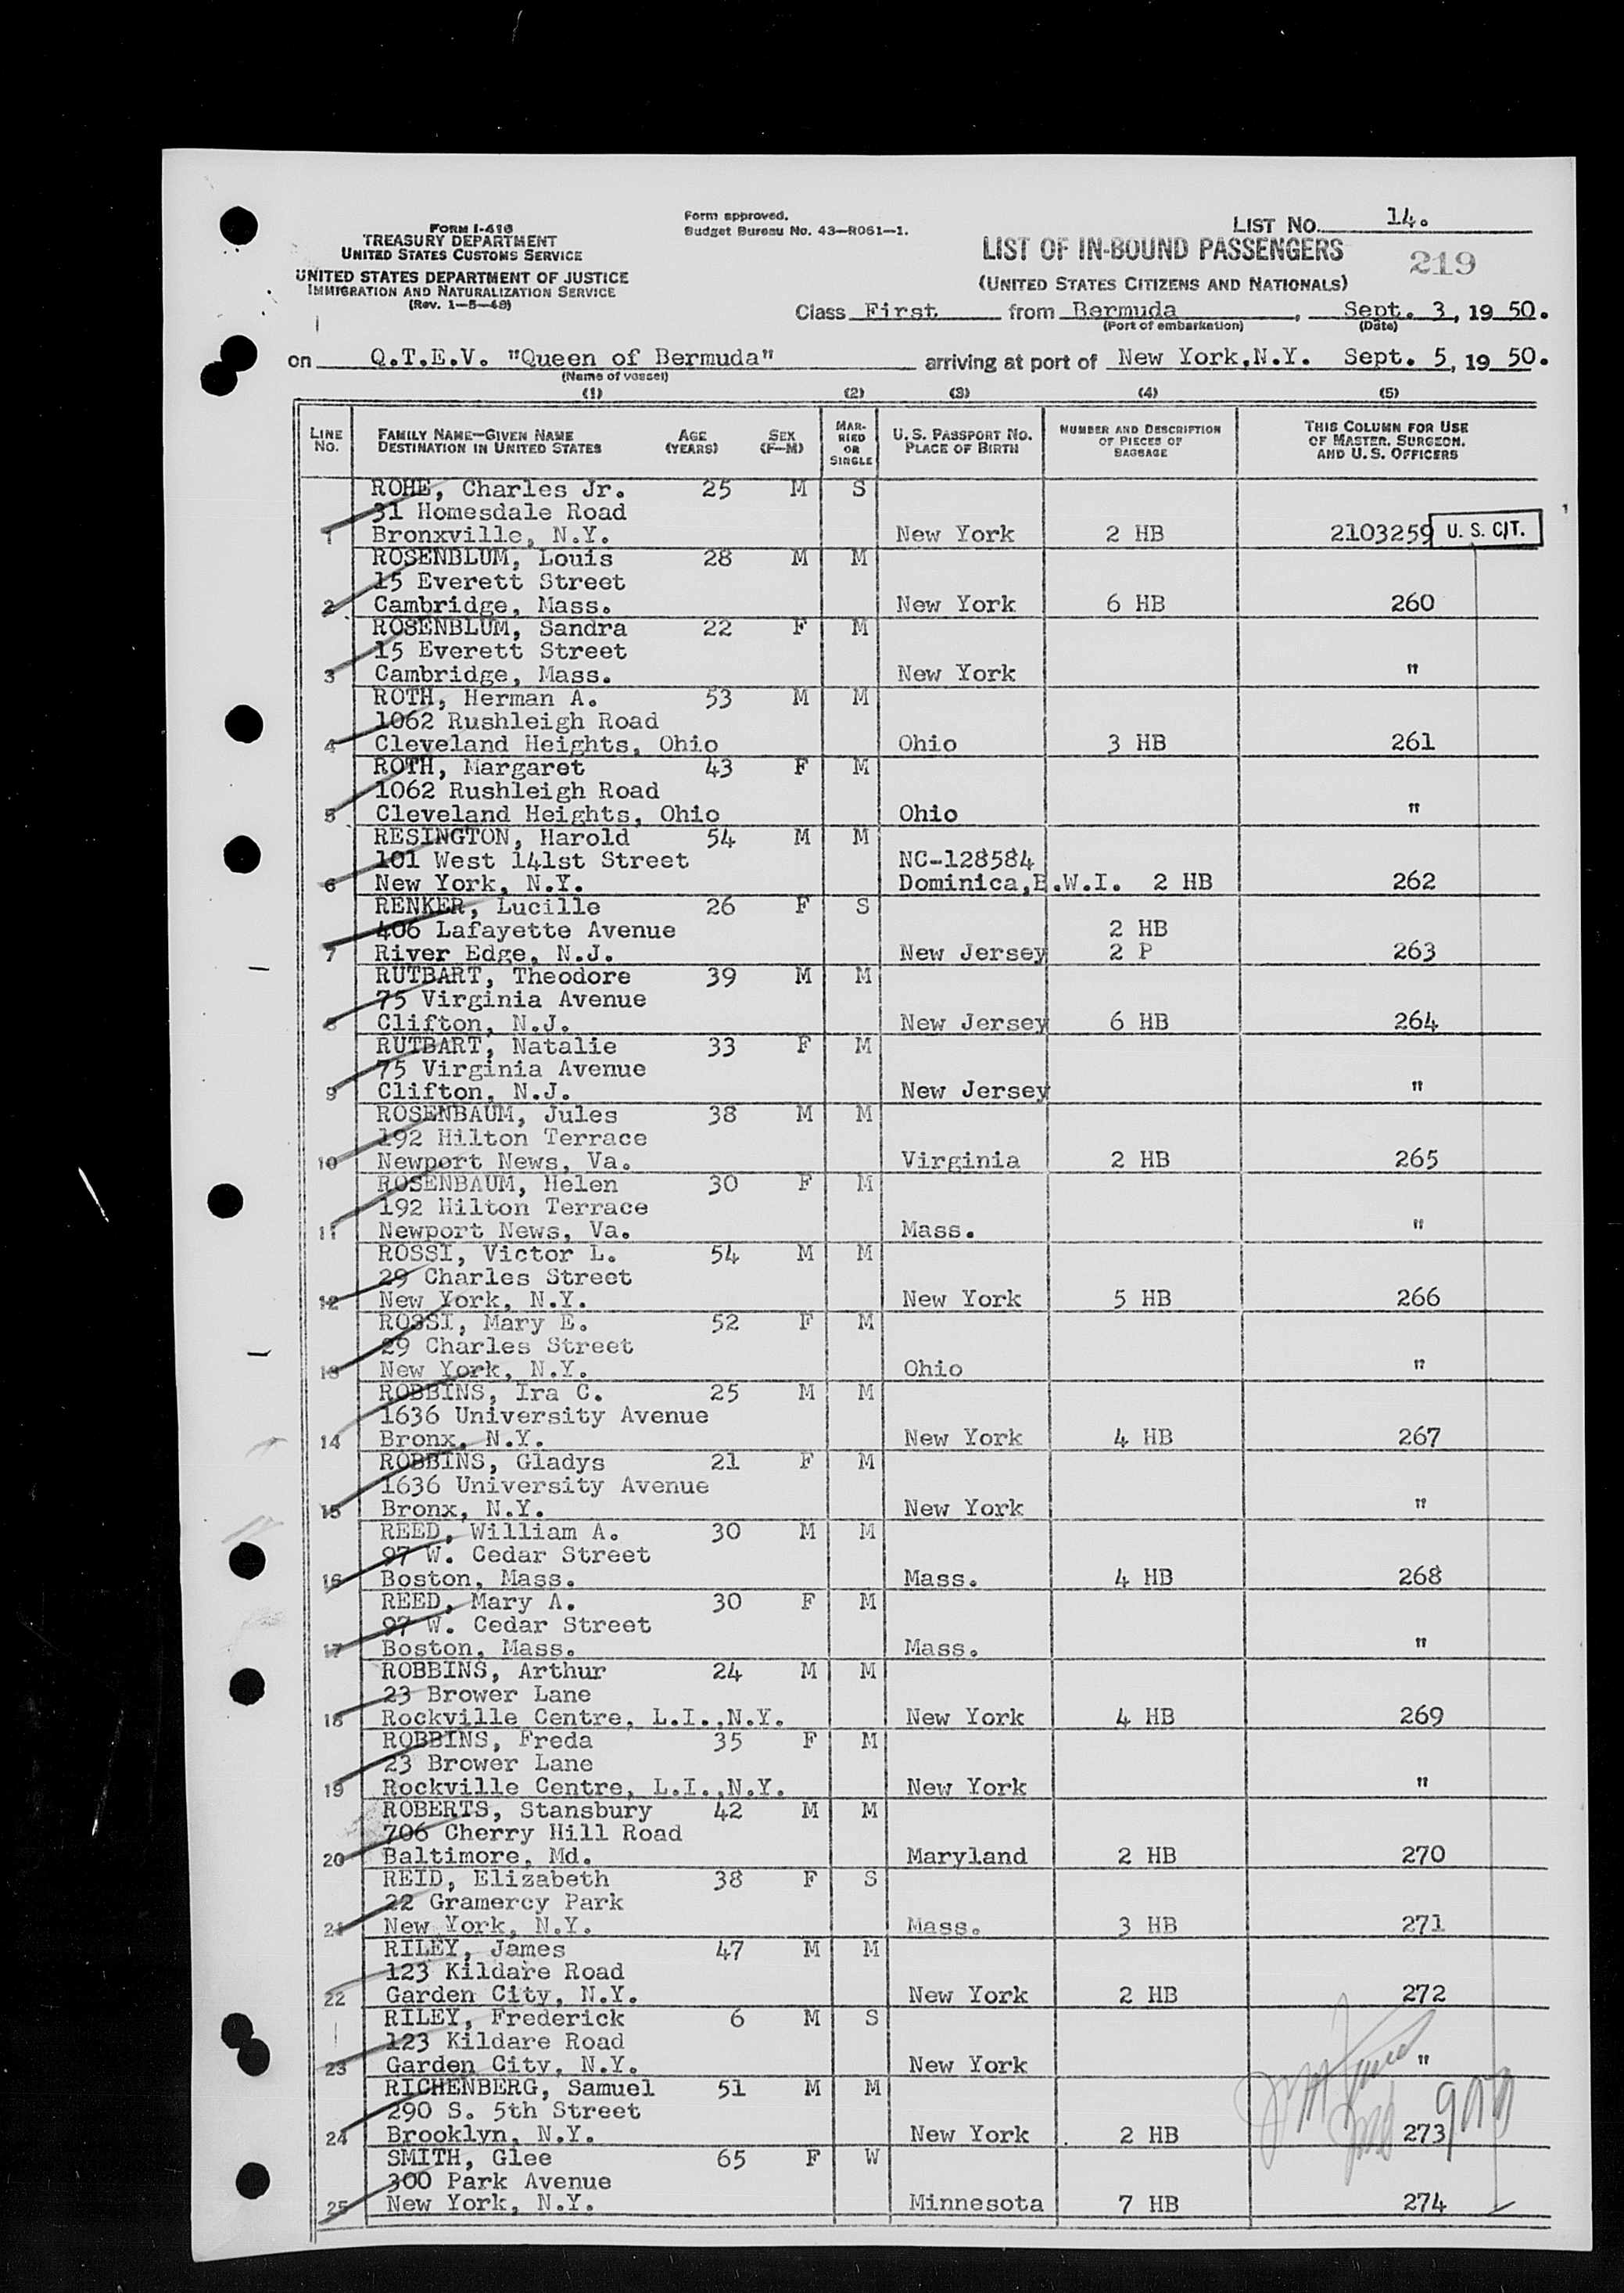 FORM I-416
TREASURY DEPARTMENT
UNITED STATES CUSTOMS SERVICE
UNITED STATES DEPARTMENT OF JUSTICE
IMMIGRATION AND NATURALIZATION SERVICE
(Rev. 1-5-49)
Form approved.
Budget Bureau No. 43-R061-1.
LIST NO. 14.
LIST OF IN-BOUND PASSENGERS
219
(UNITED STATES CITIZENS AND NATIONALS)
Class First from Bermuda, Sept. 3, 19 50.
(Port of embarkation) (Date)
on Q.T.E.V. "Queen of Bermuda" arriving at port of New York, N.Y. Sept. 5, 19 50.
(Name of vessel)
(1) (2) (3) (4) (5)
LINE NO. FAMILY NAME-GIVEN NAME DESTINATION IN UNITED STATES AGE (YEARS) SEX (F-M) MARRIED OR SINGLE U. S. PASSPORT NO. PLACE OF BIRTH NUMBER AND DESCRIPTION OF PIECES OF BAGGAGE THIS COLUMN FOR USE OF MASTER, SURGEON, AND U. S. OFFICERS
ROHE, Charles Jr. 25 M S
31 Homesdale Road
1 Bronxville, N.Y. New York 2 HB 2103259 U. S. CIT.
ROSENBLUM, Louis 28 M M
15 Everett Street
2 Cambridge, Mass. New York 6 HB 260
ROSENBLUM, Sandra 22 F M
15 Everett Street
3 Cambridge, Mass. New York "
ROTH, Herman A. 53 M M
1062 Rushleigh Road
4 Cleveland Heights, Ohio Ohio 3 HB 261
ROTH, Margaret 43 F M
1062 Rushleigh Road
5 Cleveland Heights, Ohio Ohio "
RESINGTON, Harold 54 M M
101 West 141st Street NC-128584
6 New York, N.Y. Dominica,B.W.I. 2 HB 262
RENKER, Lucille 26 F S
406 Lafayette Avenue 2 HB
7 River Edge, N.J. New Jersey 2 P 263
RUTBART, Theodore 39 M M
75 Virginia Avenue
8 Clifton, N.J. New Jersey 6 HB 264
RUTBART, Natalie 33 F M
75 Virginia Avenue
9 Clifton, N.J. New Jersey "
ROSENBAUM, Jules 38 M M
192 Hilton Terrace
10 Newport News, Va. Virginia 2 HB 265
ROSENBAUM, Helen 30 F M
192 Hilton Terrace
11 Newport News, Va. Mass. "
ROSSI, Victor L. 54 M M
29 Charles Street
12 New York, N.Y. New York 5 HB 266
ROSSI, Mary E. 52 F M
29 Charles Street
13 New York, N.Y. Ohio "
ROBBINS, Ira C. 25 M M
1636 University Avenue
14 Bronx, N.Y. New York 4 HB 267
ROBBINS, Gladys 21 F M
1636 University Avenue
15 Bronx, N.Y. New York "
REED, William A. 30 M M
97 W. Cedar Street
16 Boston, Mass. Mass. 4 HB 268
REED, Mary A. 30 F M
97 W. Cedar Street
17 Boston, Mass. Mass. "
ROBBINS, Arthur 24 M M
23 Brower Lane
18 Rockville Centre, L.I.,N.Y. New York 4 HB 269
ROBBINS, Freda 35 F M
23 Brower Lane
19 Rockville Centre, L.I.,N.Y. New York "
ROBERTS, Stansbury 42 M M
706 Cherry Hill Road
20 Baltimore, Md. Maryland 2 HB 270
REID, Elizabeth 38 F S
22 Gramercy Park
21 New York, N.Y. Mass. 3 HB 271
RILEY, James 47 M M
123 Kildare Road
22 Garden City, N.Y. New York 2 HB 272
RILEY, Frederick 6 M S
123 Kildare Road
23 Garden City, N.Y. New York "
RICHENBERG, Samuel 51 M M
290 S. 5th Street
24 Brooklyn, N.Y. New York 2 HB 273
SMITH, Glee 65 F W
300 Park Avenue
25 New York, N.Y. Minnesota 7 HB 274